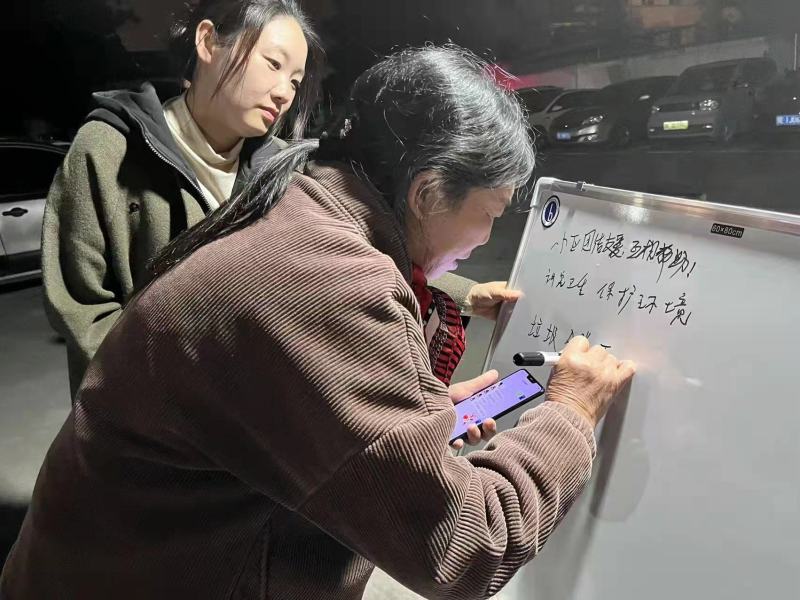 60×80cm
小区团结友爱互相帮助！
讲究卫生 保护环境
垃圾